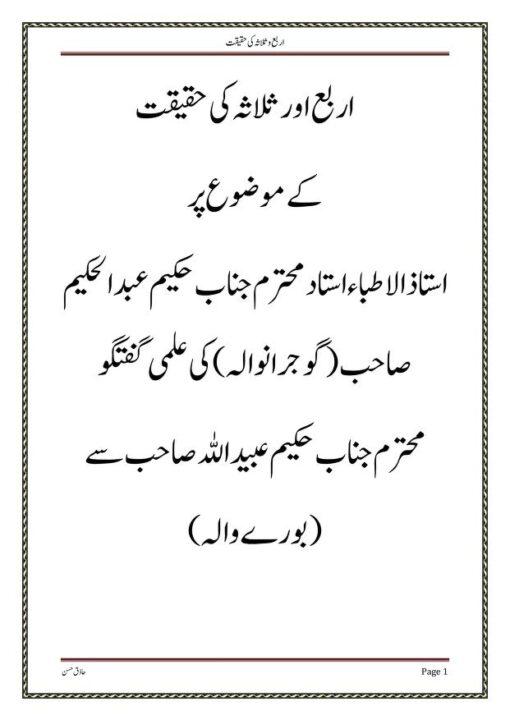 اربع و ثلاثہ کی حقیقت
اربع اور ثلاثہ کی حقیقت
کے موضوع پر
استاذ الاطباء استاد محترم جناب حکیم عبد الحکیم
صاحب (گوجرانوالہ) کی علمی گفتگو
محترم جناب حکیم عبید اللہ صاحب سے
(بورے والہ)
حسن
Page 1